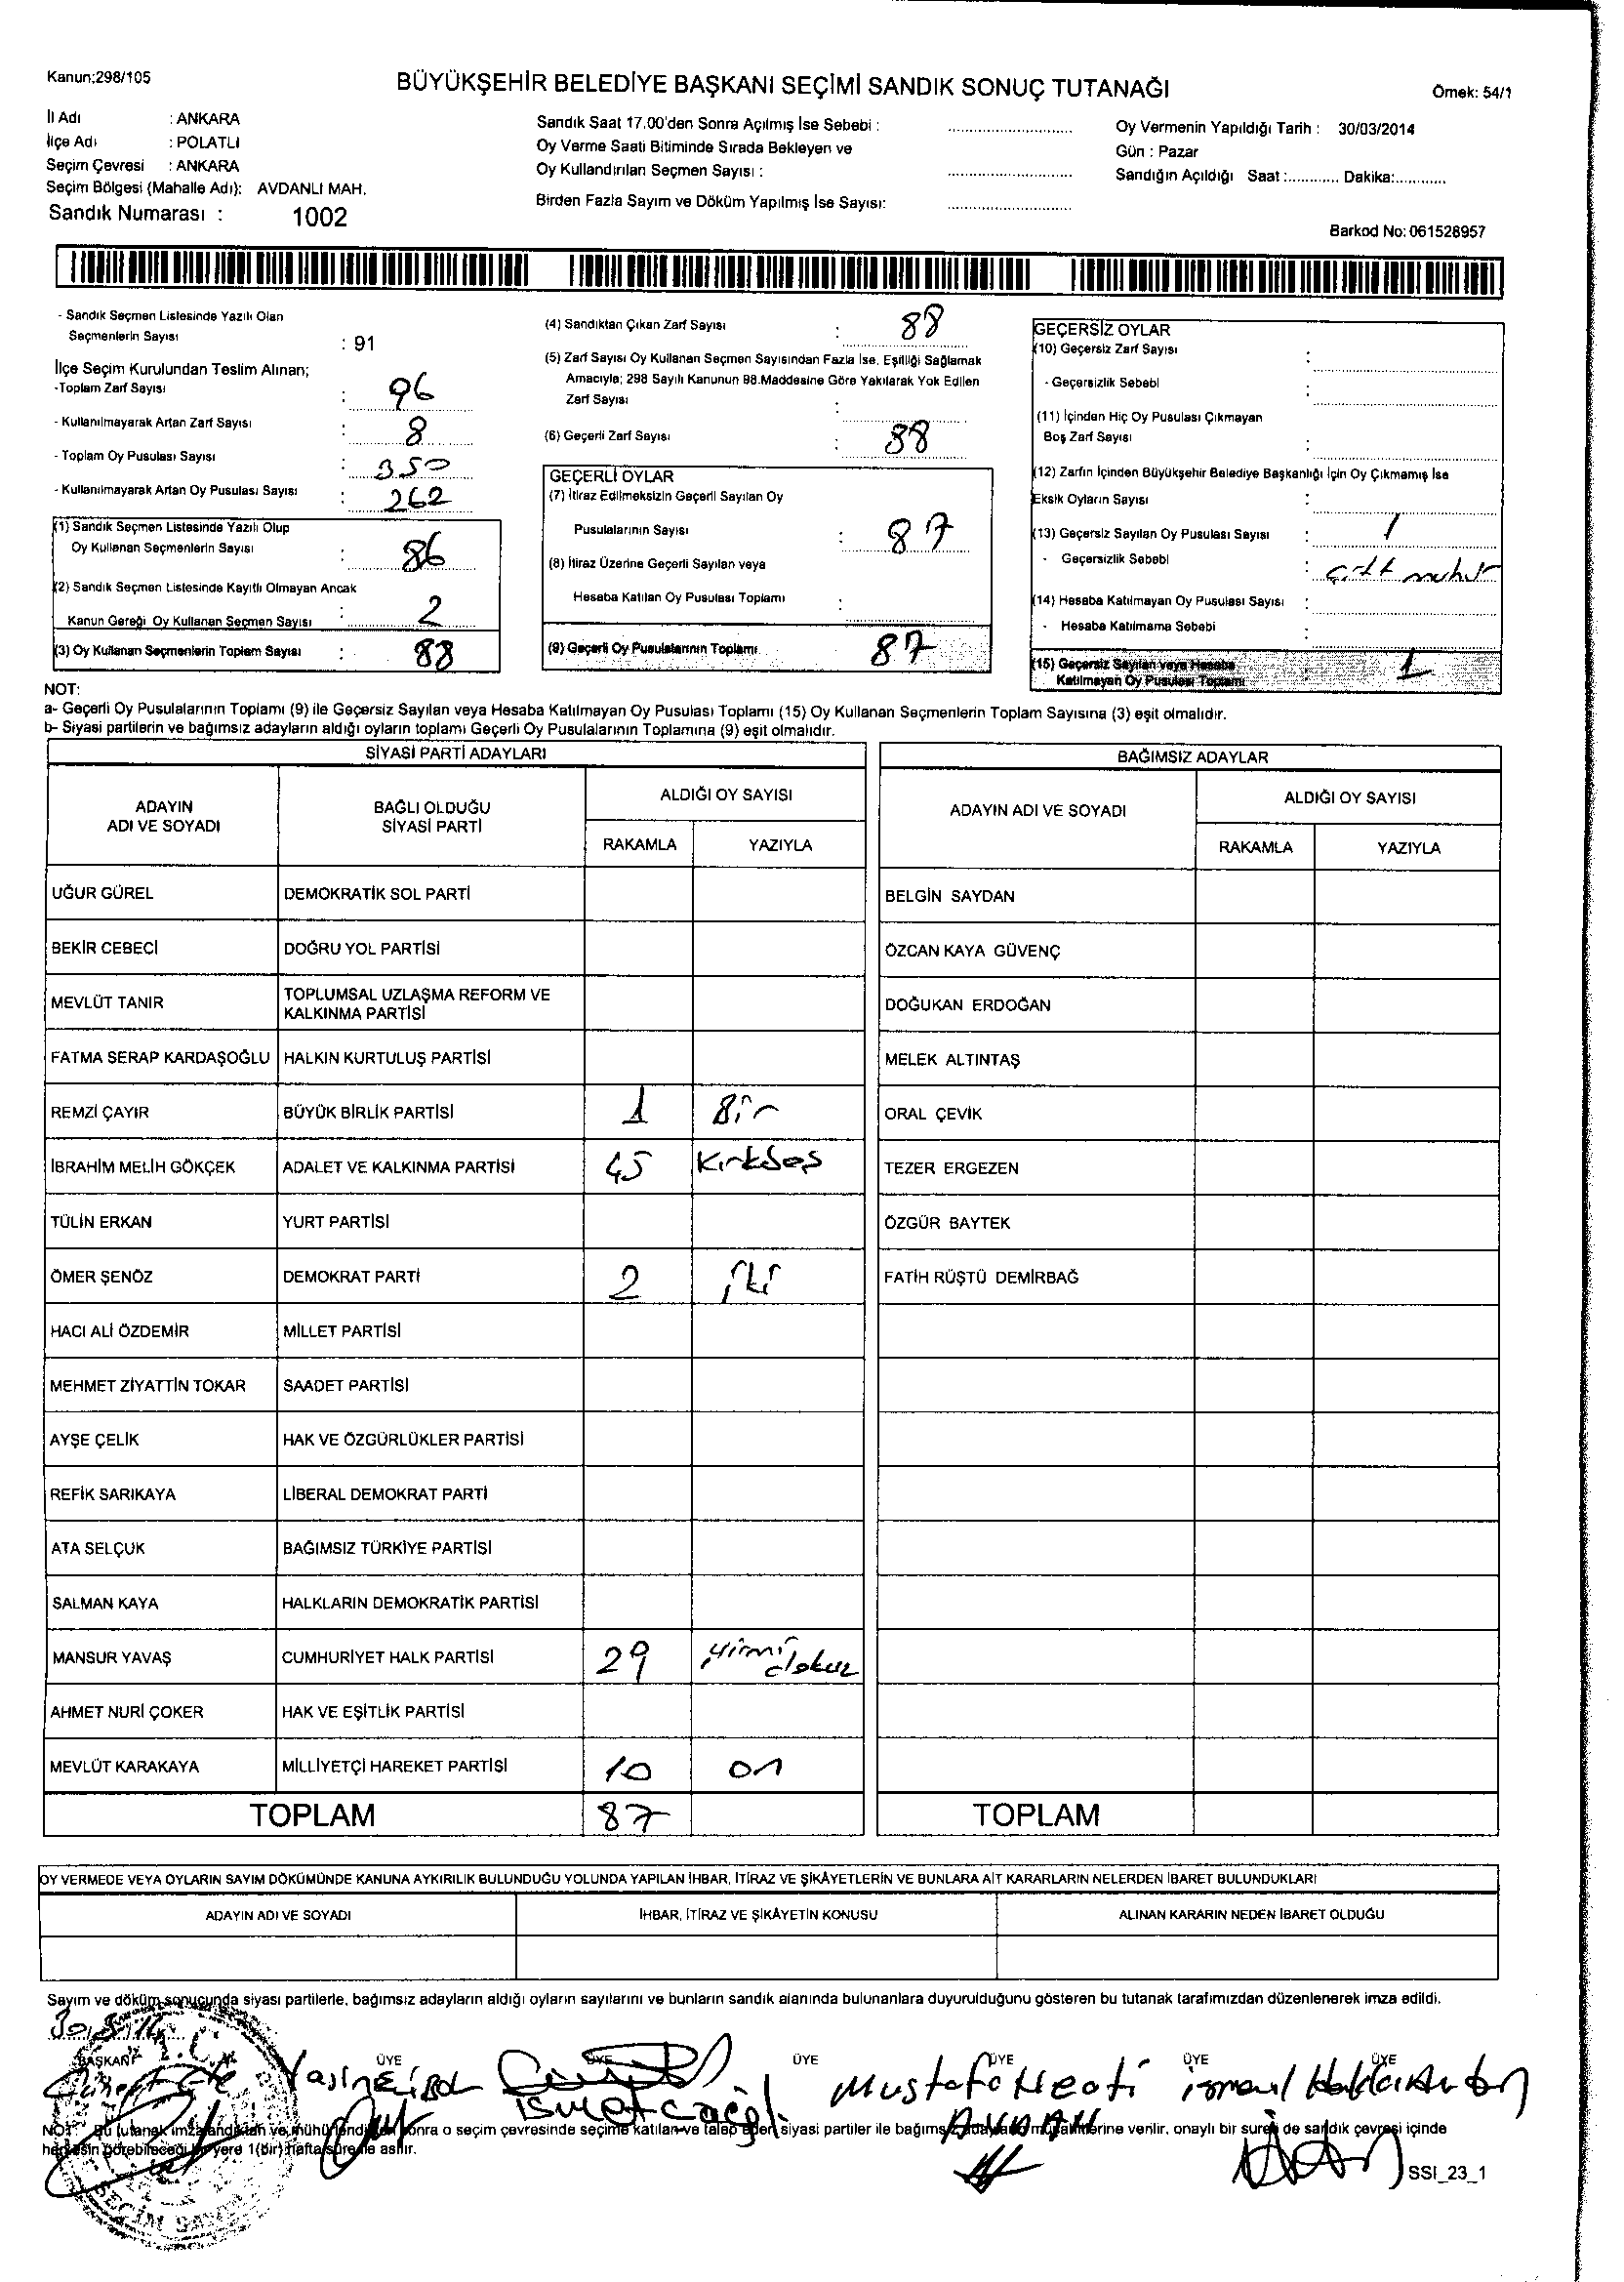 Kanun;298/105
BÜYÜKŞEHİR BELEDİYE BAŞKANI SEÇİMİ SANDIK SONUÇ TUTANAĞI
Örnek: 54/1
İl Adı : ANKARA
İlçe Adı : POLATLI
Seçim Çevresi : ANKARA
Seçim Bölgesi (Mahalle Adı): AVDANLI MAH.
Sandık Numarası : 1002
Sandık Saat 17.00'den Sonra Açılmış İse Sebebi :
Oy Verme Saati Bitiminde Sırada Bekleyen ve
Oy Kullandırılan Seçmen Sayısı :
Birden Fazla Sayım ve Döküm Yapılmış İse Sayısı:
Oy Vermenin Yapıldığı Tarih : 30/03/2014
Gün : Pazar
Sandığın Açıldığı Saat :............ Dakika:............
Barkod No: 061528957
- Sandık Seçmen Listesinde Yazılı Olan
Seçmenlerin Sayısı : 91
İlçe Seçim Kurulundan Teslim Alınan;
-Toplam Zarf Sayısı : 96
- Kullanılmayarak Artan Zarf Sayısı : 8
- Toplam Oy Pusulası Sayısı : 350
- Kullanılmayarak Artan Oy Pusulası Sayısı : 262
(1) Sandık Seçmen Listesinde Yazılı Olup
Oy Kullanan Seçmenlerin Sayısı : 86
(2) Sandık Seçmen Listesinde Kayıtlı Olmayan Ancak
Kanun Gereği Oy Kullanan Seçmen Sayısı : 2
(3) Oy Kullanan Seçmenlerin Toplam Sayısı : 88
(4) Sandıktan Çıkan Zarf Sayısı : 88
(5) Zarf Sayısı Oy Kullanan Seçmen Sayısından Fazla İse, Eşitliği Sağlamak
Amacıyla; 298 Sayılı Kanunun 98.Maddesine Göre Yakılarak Yok Edilen
Zarf Sayısı :
(6) Geçerli Zarf Sayısı : 88
GEÇERLİ OYLAR
(7) İtiraz Edilmeksizin Geçerli Sayılan Oy
Pusulalarının Sayısı : 87
(8) İtiraz Üzerine Geçerli Sayılan veya
Hesaba Katılan Oy Pusulası Toplamı :
(9) Geçerli Oy Pusulalarının Toplamı 87
GEÇERSİZ OYLAR
(10) Geçersiz Zarf Sayısı :
- Geçersizlik Sebebi :
(11) İçinden Hiç Oy Pusulası Çıkmayan
Boş Zarf Sayısı :
(12) Zarfın İçinden Büyükşehir Belediye Başkanlığı İçin Oy Çıkmamış İse
Eksik Oyların Sayısı :
(13) Geçersiz Sayılan Oy Pusulası Sayısı : 1
- Geçersizlik Sebebi : çift mühür
(14) Hesaba Katılmayan Oy Pusulası Sayısı :
- Hesaba Katılmama Sebebi :
(15) Geçersiz Sayılan veya Hesaba
Katılmayan Oy Pusulası Toplamı 1
NOT:
a- Geçerli Oy Pusulalarının Toplamı (9) ile Geçersiz Sayılan veya Hesaba Katılmayan Oy Pusulası Toplamı (15) Oy Kullanan Seçmenlerin Toplam Sayısına (3) eşit olmalıdır.
b- Siyasi partilerin ve bağımsız adayların aldığı oyların toplamı Geçerli Oy Pusulalarının Toplamına (9) eşit olmalıdır.
SİYASİ PARTİ ADAYLARI
ADAYIN ADI VE SOYADI
BAĞLI OLDUĞU SİYASİ PARTİ
ALDIĞI OY SAYISI
RAKAMLA YAZIYLA
UĞUR GÜREL DEMOKRATİK SOL PARTİ
BEKİR CEBECİ DOĞRU YOL PARTİSİ
MEVLÜT TANIR TOPLUMSAL UZLAŞMA REFORM VE
KALKINMA PARTİSİ
FATMA SERAP KARDAŞOĞLU HALKIN KURTULUŞ PARTİSİ
REMZİ ÇAYIR BÜYÜK BİRLİK PARTİSİ 1 Bir
İBRAHİM MELİH GÖKÇEK ADALET VE KALKINMA PARTİSİ 45 Kırkbeş
TÜLİN ERKAN YURT PARTİSİ
ÖMER ŞENÖZ DEMOKRAT PARTİ 2 iki
HACI ALİ ÖZDEMİR MİLLET PARTİSİ
MEHMET ZİYATTİN TOKAR SAADET PARTİSİ
AYŞE ÇELİK HAK VE ÖZGÜRLÜKLER PARTİSİ
REFİK SARIKAYA LİBERAL DEMOKRAT PARTİ
ATA SELÇUK BAĞIMSIZ TÜRKİYE PARTİSİ
SALMAN KAYA HALKLARIN DEMOKRATİK PARTİSİ
MANSUR YAVAŞ CUMHURİYET HALK PARTİSİ 29 yirmi dokuz
AHMET NURİ ÇOKER HAK VE EŞİTLİK PARTİSİ
MEVLÜT KARAKAYA MİLLİYETÇİ HAREKET PARTİSİ 10 on
TOPLAM 87
BAĞIMSIZ ADAYLAR
ADAYIN ADI VE SOYADI
ALDIĞI OY SAYISI
RAKAMLA YAZIYLA
BELGİN SAYDAN
ÖZCAN KAYA GÜVENÇ
DOĞUKAN ERDOĞAN
MELEK ALTINTAŞ
ORAL ÇEVİK
TEZER ERGEZEN
ÖZGÜR BAYTEK
FATİH RÜŞTÜ DEMİRBAĞ
TOPLAM
OY VERMEDE VEYA OYLARIN SAYIM DÖKÜMÜNDE KANUNA AYKIRILIK BULUNDUĞU YOLUNDA YAPILAN İHBAR, İTİRAZ VE ŞİKÂYETLERİN VE BUNLARA AİT KARARLARIN NELERDEN İBARET BULUNDUKLARI
ADAYIN ADI VE SOYADI İHBAR, İTİRAZ VE ŞİKÂYETİN KONUSU ALINAN KARARIN NEDEN İBARET OLDUĞU
Sayım ve döküm sonucunda siyasi partilerle, bağımsız adayların aldığı oyların sayılarını ve bunların sandık alanında bulunanlara duyurulduğunu gösteren bu tutanak tarafımızdan düzenlenerek imza edildi.
BAŞKAN ÜYE ÜYE ÜYE ÜYE ÜYE ÜYE
Mustafa Necati
NOT: Bu tutanak imzalandıktan ve mühürlendikten sonra o seçim çevresinde seçime katılan ve talep eden siyasi partiler ile bağımsız adayların müşahitlerine verilir, onaylı bir sureti de sandık çevresi içinde
herkesin görebileceği bir yere 1(bir) hafta süre ile asılır.
SSI_23_1